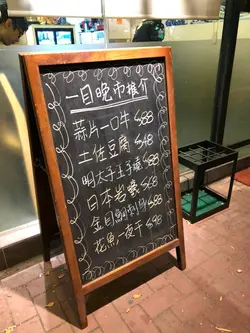 一目晚市推介
蒜片一口牛 $88
土佐豆腐 $48
明太子玉子燒 $68
日本岩蠔 $68
金目鯛刺身 $98
花魚一夜干 $98